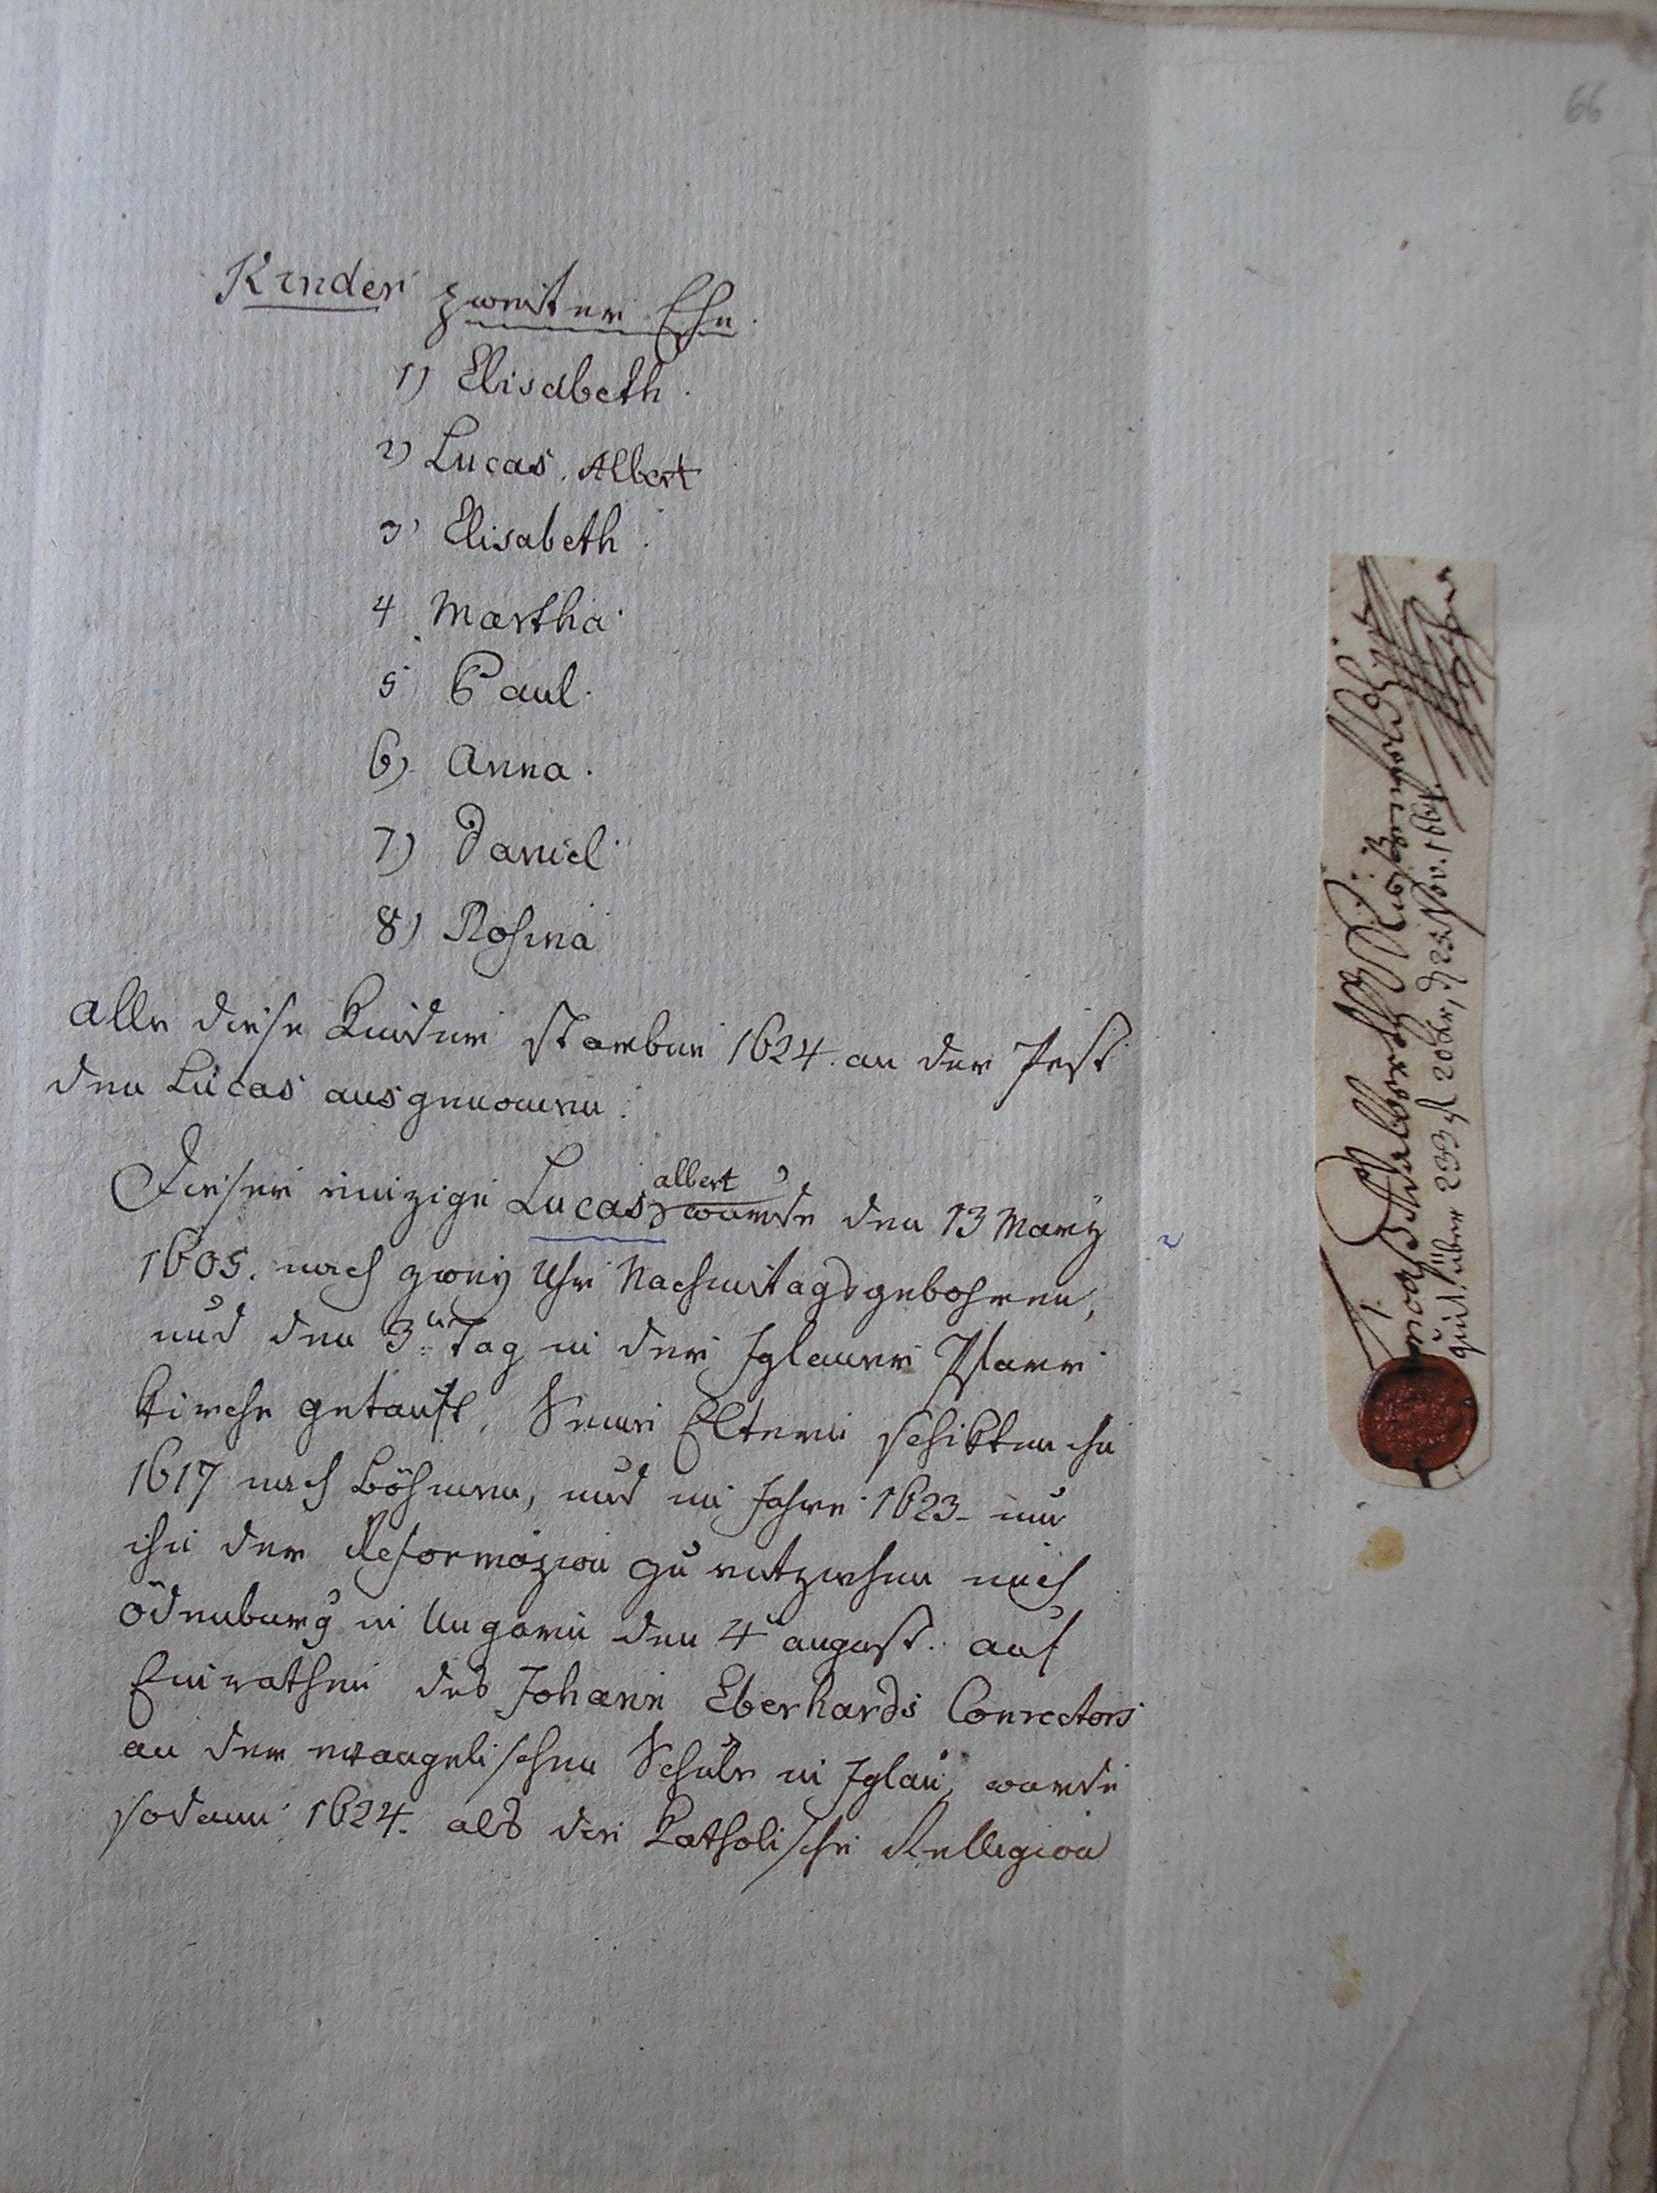 66
Kinder zweiter Ehe.
1) Elisabeth.
2) Lucas. Albert
3) Elisabeth.
4 Martha.
5 Paul.
6) Anna.
7) Daniel.
8) Rosina
Alle diese Kinder starben 1624. an der Pest
den Lucas ausgenomen.
albert
Dieser einzige Lucas wurde den 13 März
1605. nach zwey Uhr Nachmitags gebohren,
und den 3ten Tag in der Iglauer Pfarr
kirche getauft. Seine Eltern schikten ihn
1617 nach Böhmen, und im Jahre 1623 um
ihn der Reformazion zu entziehen nach
Ödenburg in Ungarn den 4 august. auf
Einrathen des Johann Eberhards Conrectors
an der evangelischen Schule in Iglau, wurde
sodann 1624. als die Katholische Relligion
quit. über 233 fl 20 kr, d 25 Nov. 1664